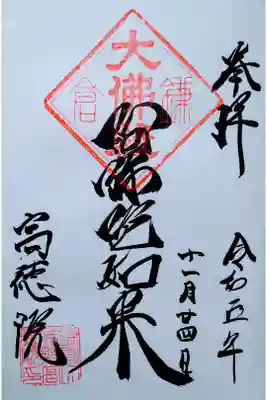 奉拝
令和五年
十一月廿四日
鎌
大佛殿
倉
阿弥陀如来
高徳院